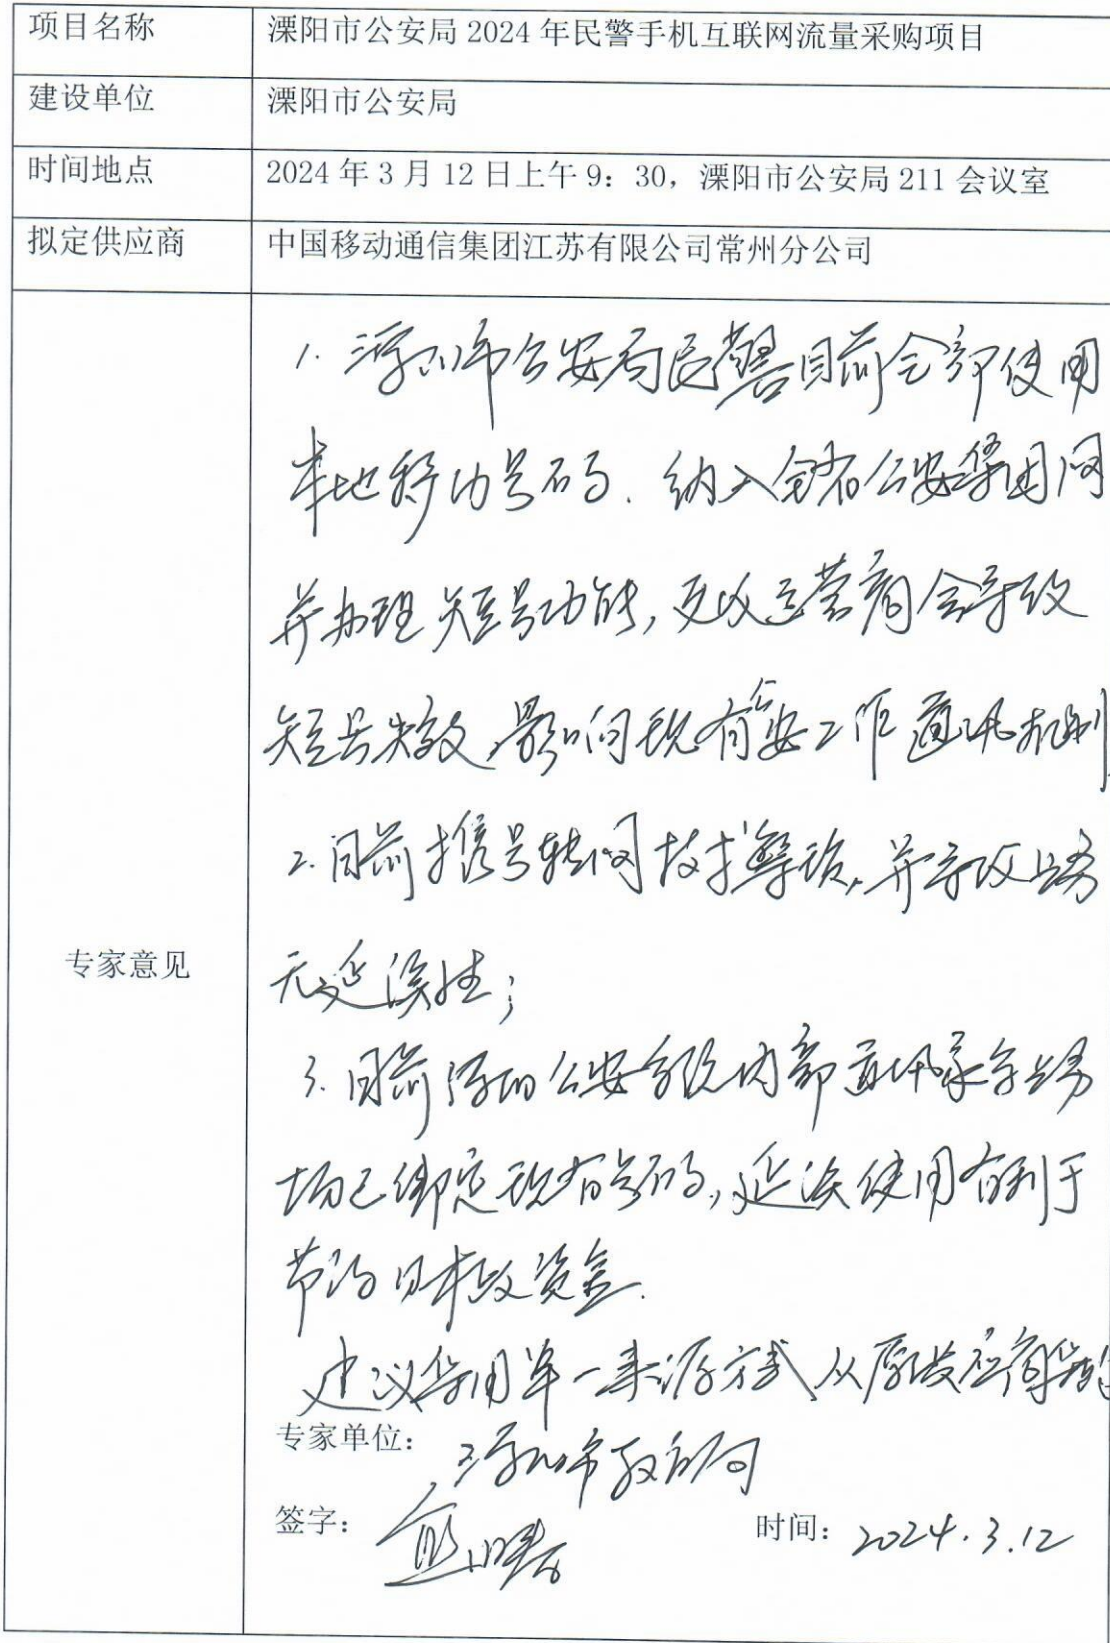 项目名称 溧阳市公安局 2024 年民警手机互联网流量采购项目
建设单位 溧阳市公安局
时间地点 2024 年 3 月 12 日上午 9：30，溧阳市公安局 211 会议室
拟定供应商 中国移动通信集团江苏有限公司常州分公司
专家意见
1. 溧阳市公安局民警目前全部使用
本地移动号码. 纳入全省公安集团网
并办理短号功能, 更改运营商会导致
短号失效,影响现有公安工作通讯机制
2. 目前携号转网技术繁琐, 并导致业务
无延续性;
3. 目前溧阳公安系统内部通讯录等业务
均已绑定现有号码, 延续使用有利于
节约财政资金.
建议采用单一来源方式从原供应商采购
专家单位： 溧阳市教育局
签字：
时间：2024.3.12